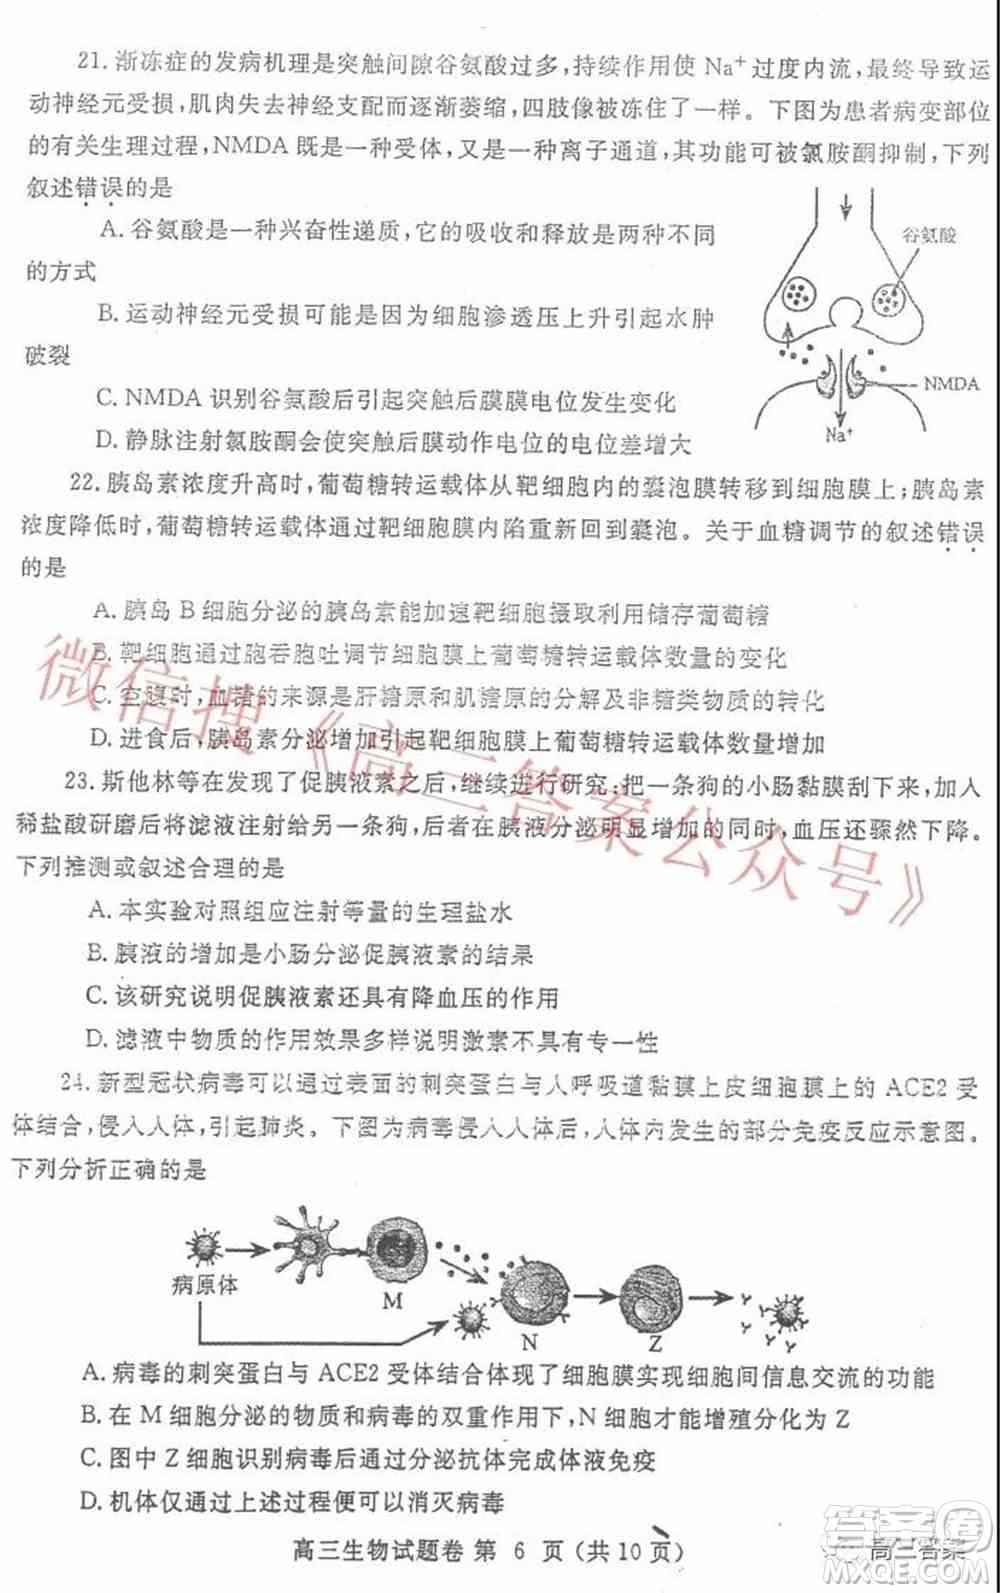 21. 渐冻症的发病机理是突触间隙谷氨酸过多，持续作用使 Na⁺ 过度内流，最终导致运
动神经元受损，肌肉失去神经支配而逐渐萎缩，四肢像被冻住了一样。下图为患者病变部位
的有关生理过程，NMDA 既是一种受体，又是一种离子通道，其功能可被氯胺酮抑制，下列
叙述错误的是
A. 谷氨酸是一种兴奋性递质，它的吸收和释放是两种不同
的方式
B. 运动神经元受损可能是因为细胞渗透压上升引起水肿
破裂
C. NMDA 识别谷氨酸后引起突触后膜膜电位发生变化
D. 静脉注射氯胺酮会使突触后膜动作电位的电位差增大
谷氨酸
NMDA
Na⁺
22. 胰岛素浓度升高时，葡萄糖转运载体从靶细胞内的囊泡膜转移到细胞膜上；胰岛素
浓度降低时，葡萄糖转运载体通过靶细胞膜内陷重新回到囊泡。关于血糖调节的叙述错误
的是
A. 胰岛 B 细胞分泌的胰岛素能加速靶细胞摄取利用储存葡萄糖
B. 靶细胞通过胞吞胞吐调节细胞膜上葡萄糖转运载体数量的变化
C. 空腹时，血糖的来源是肝糖原和肌糖原的分解及非糖类物质的转化
D. 进食后，胰岛素分泌增加引起靶细胞膜上葡萄糖转运载体数量增加
23. 斯他林等在发现了促胰液素之后，继续进行研究：把一条狗的小肠黏膜刮下来，加入
稀盐酸研磨后将滤液注射给另一条狗，后者在胰液分泌明显增加的同时，血压还骤然下降。
下列推测或叙述合理的是
A. 本实验对照组应注射等量的生理盐水
B. 胰液的增加是小肠分泌促胰液素的结果
C. 该研究说明促胰液素还具有降血压的作用
D. 滤液中物质的作用效果多样说明激素不具有专一性
24. 新型冠状病毒可以通过表面的刺突蛋白与人呼吸道黏膜上皮细胞膜上的 ACE2 受
体结合，侵入人体，引起肺炎。下图为病毒侵入人体后，人体内发生的部分免疫反应示意图。
下列分析正确的是
病原体
M
N
Z
A. 病毒的刺突蛋白与 ACE2 受体结合体现了细胞膜实现细胞间信息交流的功能
B. 在 M 细胞分泌的物质和病毒的双重作用下，N 细胞才能增殖分化为 Z
C. 图中 Z 细胞识别病毒后通过分泌抗体完成体液免疫
D. 机体仅通过上述过程便可以消灭病毒
高三生物试题卷 第 6 页（共 10 页）
微信搜《高三答案公众号》
答案圈
高三答案
MXQE.COM